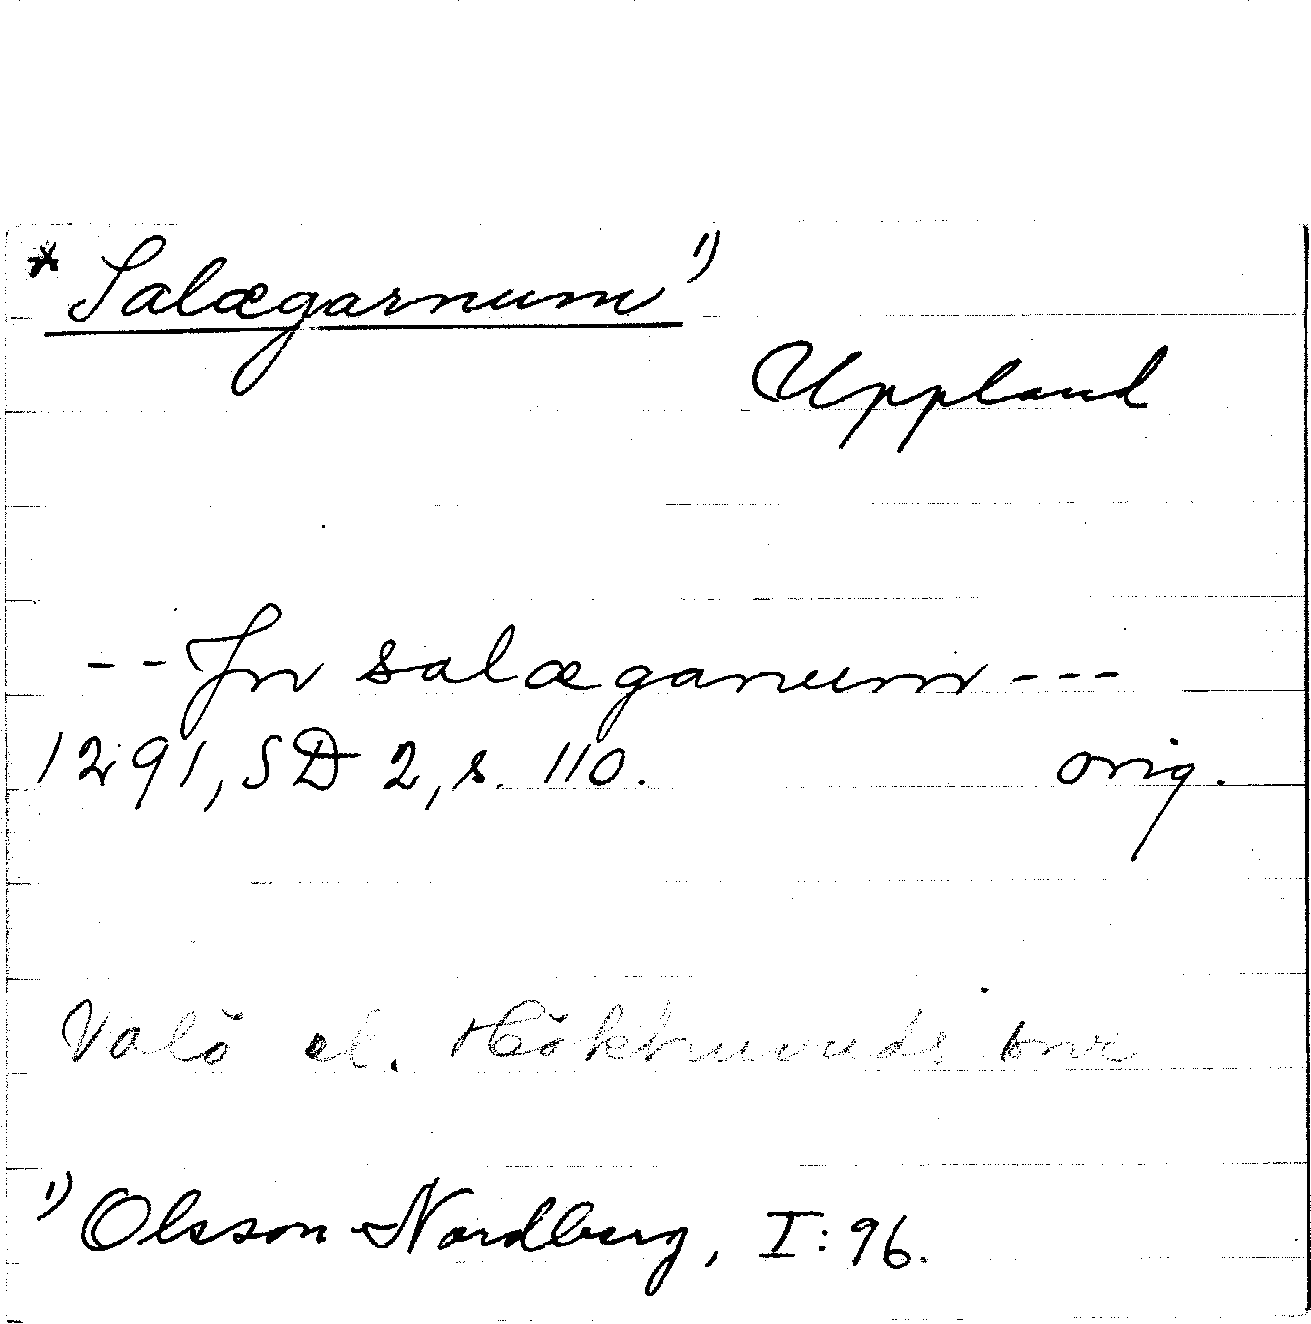 * Salægarnum 1)
Uppland
-- In salæganum ---
1291, SD 2, s. 110. orig.
Valö el. Hökhuvuds snr
1) Olsson-Nordberg, I:96.